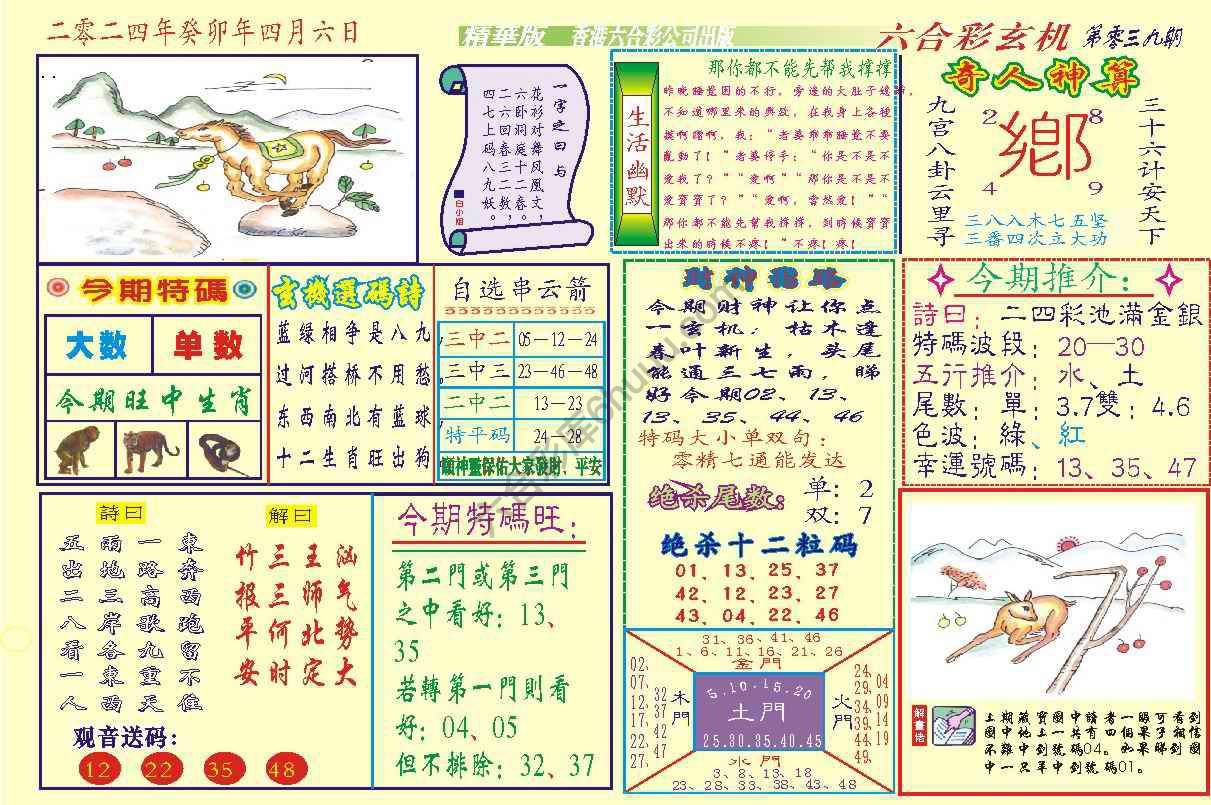 二零二四年癸卯年四月六日
精華版 香港六合彩公司出版
六合彩玄机 第零三九期
一字之曰：与
花衫对舞风凰文，
六卧洞庭三十春。
二六回春二二数，
四七上码八九妖。
白小姐
生活幽默
那你都不能先帮我撑撑
奇人神算
九宫八卦云里寻
2
8
鄉
4
9
三十六计安天下
三八八木七五坚
三番四次立大功
今期特碼
大数
单数
今期旺中生肖
玄機選碼詩
蓝绿相争是八九
过河搭桥不用愁
东西南北有蓝球
十二生肖旺出狗
自选串云箭
三中二 05—12—24
三中三 23—46—48
二中二 13—23
特平码 24—28
願神靈保佑大家發財，平安
今期财神让你点
一玄机：枯木逢
春叶新生，头尾
能通三七雨，睇
好今期02、13、
13、35、44、46
特码大小单双句：
零精七通能发达
绝杀尾数：
单：2
双：7
绝杀十二粒码
01、13、25、37
42、12、23、27
43、04、22、46
今期推介：
詩曰：二四彩池滿金銀
特碼波段：20—30
五行推介：水、土
尾數：單：3.7雙：4.6
色波：綠、紅
幸運號碼：13、35、47
詩曰
東奔西跑留不住
一路高歌九重天
雨地三岸各東西
五出二八看一人
解曰
汹气势大
王师北定
三三何时
竹报平安
观音送码：
12 22 35 48
今期特碼旺：
第二門或第三門
之中看好：13、
35
若轉第一門則看
好：04、05
但不排除：32、37
31、36、41、46
1、6、11、16、21、26
金門
02、07、12、17、22、27、
32 37 42 47
木門
5.10.15.20
土門
25.30.35.40.45
火門
24、29、34、39、44、49、
04 09 14 19
水門
3、8、13、18
23、28、33、38、43、48
解畫佬
上期藏寶圖中讀者一眼可看到
圖中地上一共有四個果子相信
不難中到號碼04。如果睇到圖
中一只羊中到號碼01。